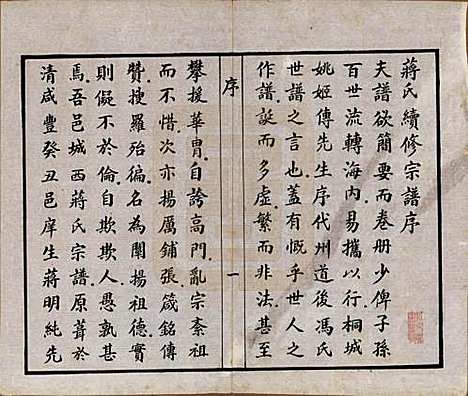 蔣氏續修宗譜序
夫譜欲簡要而卷册少俾子孫
百世流轉海内易攜以行桐城
姚姬傳先生序代州道後馮氏
世譜之言也蓋有慨乎世人之
作譜誕而多虛繁而非法甚至
序
一
攀援華胄自誇高門亂宗紊祖
而不惜次亦揚厲鋪張箴銘傳
贊搜羅殆徧名為闡揚祖德實
則儗不於倫自欺欺人愚孰甚
焉吾邑城西蔣氏宗譜原葺於
清咸豐癸丑邑庠生蔣明純先